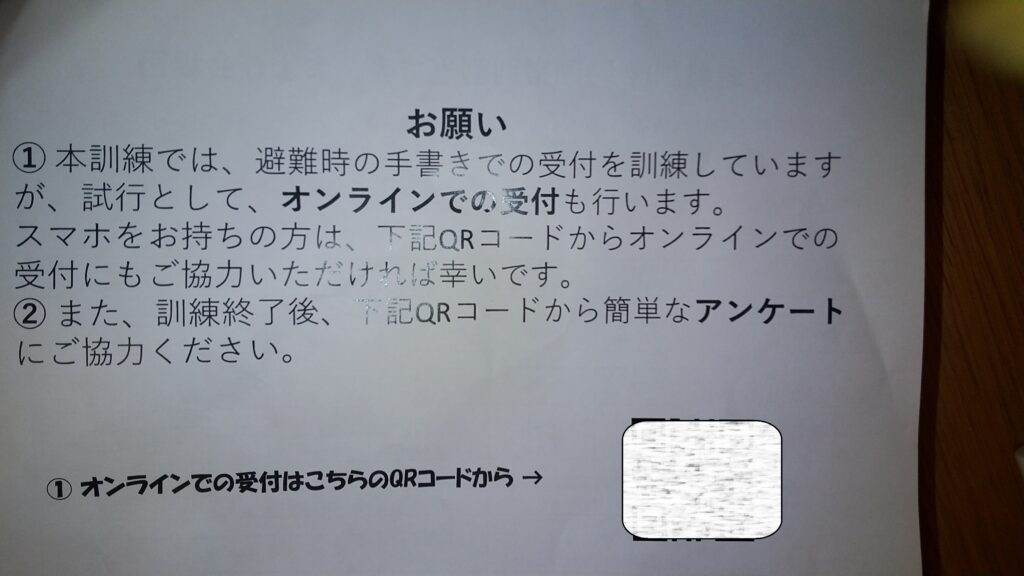 お願い
① 本訓練では、避難時の手書きでの受付を訓練しています
が、試行として、オンラインでの受付も行います。
スマホをお持ちの方は、下記QRコードからオンラインでの
受付にもご協力いただければ幸いです。
② また、訓練終了後、下記QRコードから簡単なアンケート
にご協力ください。
① オンラインでの受付はこちらのQRコードから →